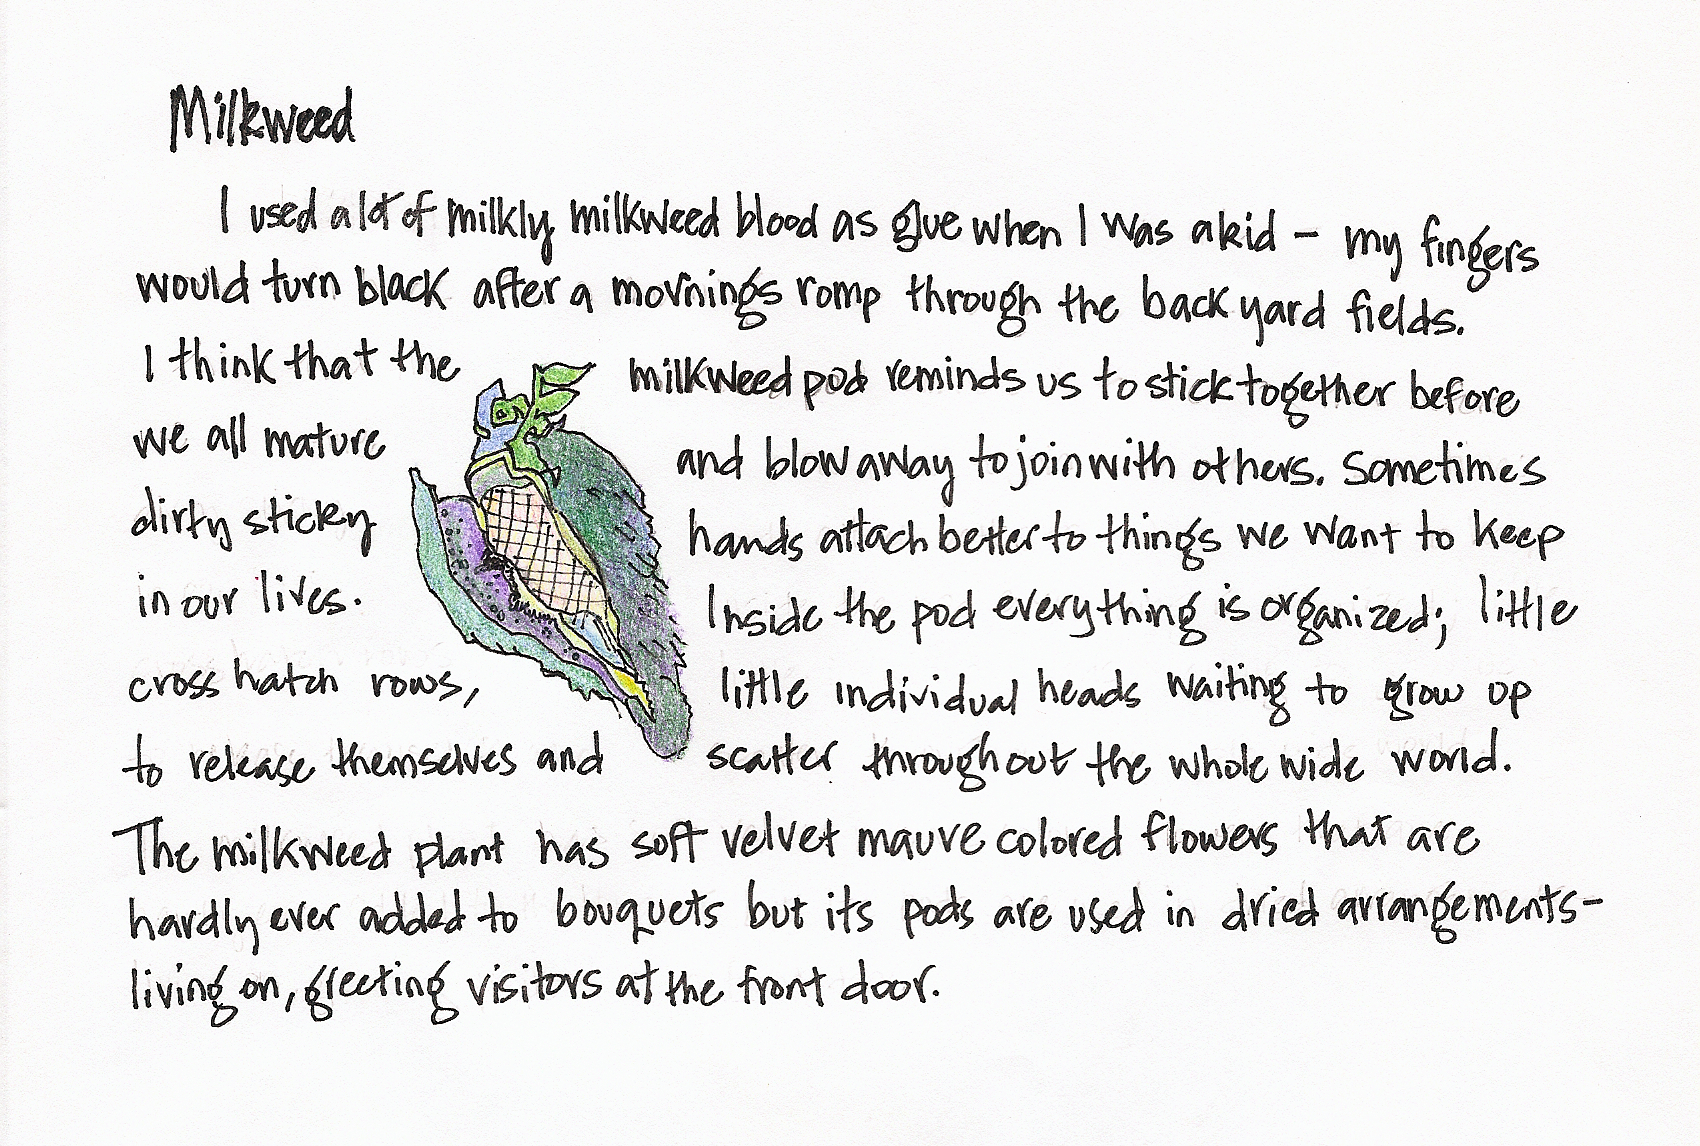 Milkweed
I used a lot of milkly milkweed blood as glue when I was a kid – my fingers
would turn black after a mornings romp through the back yard fields.
I think that the milkweed pod reminds us to stick together before
we all mature and blow away to join with others. Sometimes
dirty sticky hands attach better to things we want to keep
in our lives. Inside the pod everything is organized; little
cross hatch rows, little individual heads waiting to grow up
to release themselves and scatter throughout the whole wide world.
The milkweed plant has soft velvet mauve colored flowers that are
hardly ever added to bouquets but its pods are used in dried arrangements–
living on, greeting visitors at the front door.